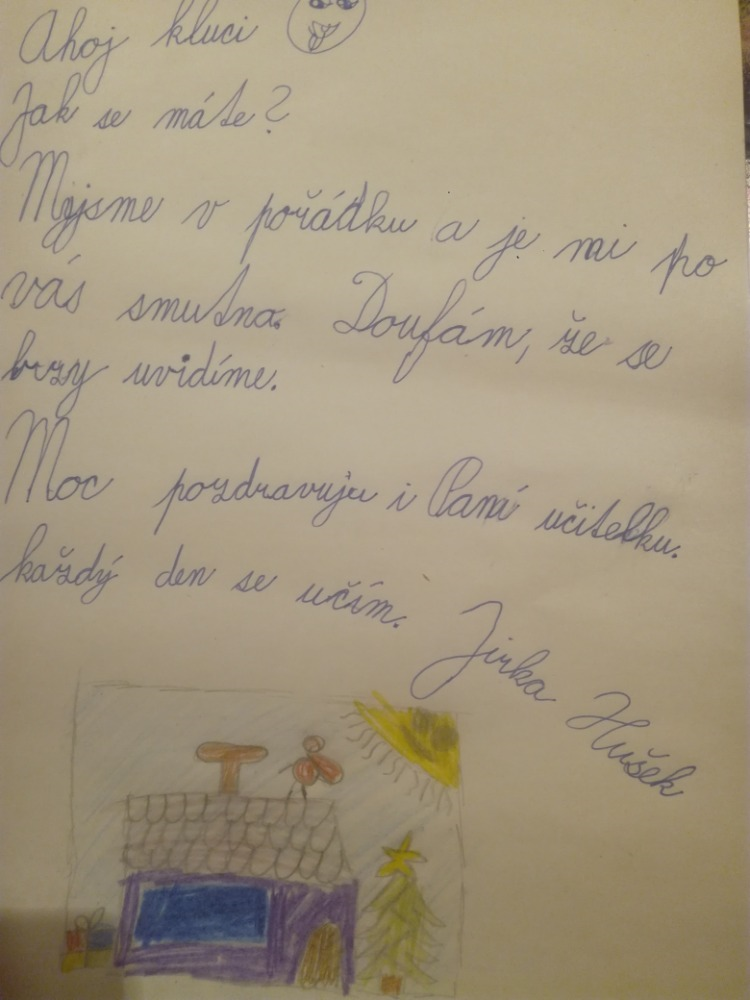 Ahoj kluci
Jak se máte?
Myjsme v pořádku a je mi po
vás smutno. Doufám, že se
brzy uvidíme.
Moc pozdravuju i Paní učitelku.
každý den se učím. Jirka Hušek